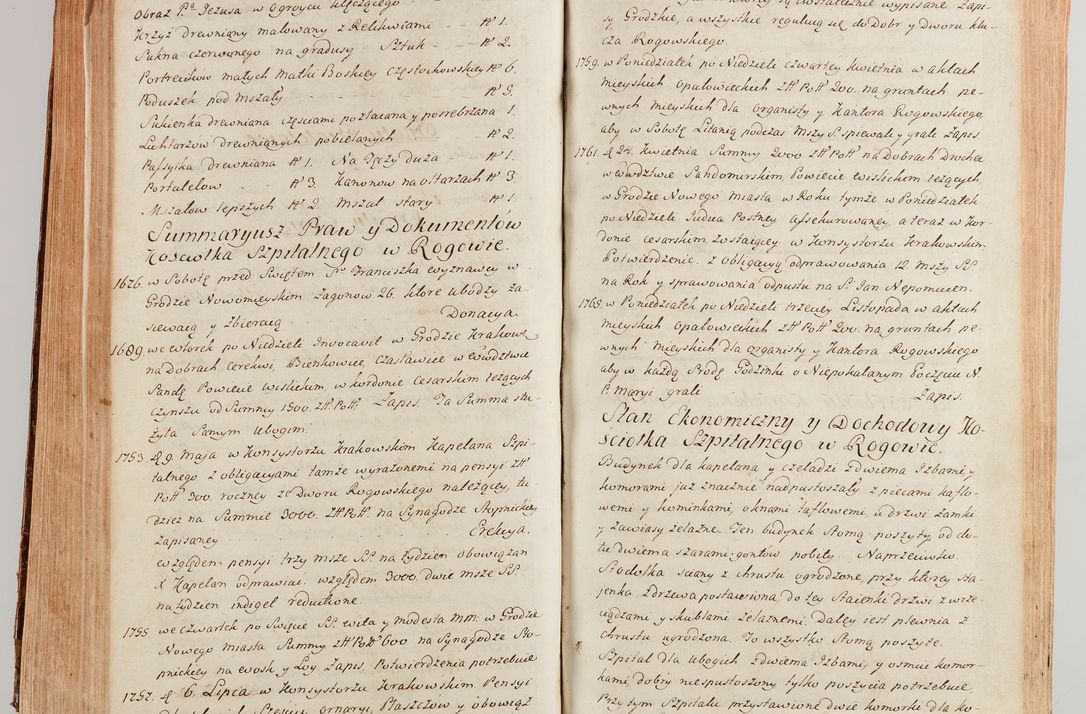 Obraz P.ª Jezusa w Ogroycu klęczącego
Krzyż Drewniany malowany z Relikwiami N 1.
Sukna czerwonego na gradusy Sztuk N 2.
Portreikow małych Matki Boskiey Częstochowskiey N 6.
Poduszek pod Mszały N 5.
Sukienka drewniana częściami pozłacana y posrebrzana 1.
Lichtarzow drewnianych pobielanych N 2.
Passyika drewniana N 1. Na Tęczy Duża N 1.
Portatelow N 3. Kanonow na ołtarzach N 3
Mszałow lepszych N 2. Mszał stary N 1.
Summaryusz Praw y Dokumentów
Kosciołka Szpitalnego w Rogowie.
1676. w Sobotę przed Świętem S.º Franciszka wyznawcy w
Grodzie Nowomieyskim Zagonow 26. które Ubodzy za-
siewaią y zbieraią Donacya.
1689. we wtorek po Niedzieli Invocavit w Grodzie Krakows:
na Dobrach Cerekwi, Bienkowice, Czasławice w Ewództwie
Sand: Powiecie wislickim, w kordonie Cesarskim leżących
czynszu od Summy 1500. Złł Poll. Zapis. Ta Summa słu-
żyła Samym Ubogim.
1753. d. 9. Maja w Konsystorzu Krakowskim Kapelana Szpi-
talnego z obligacyami tamże wyrażonemi na pensyi Złł
Poll 300. roczney ze Dworu Rogowskiego należącey, tu-
dzież na Summie 3000. Złł Poll. na Synagodze Stopnickiey
zapisaney Erekcya.
Względem pensyi trzy msze SS. na tydzien obowiązan
X Kapelan odprawiac. względem 3000. dwie msze SS.
na tydzien indiget reductione.
1755. we czwartek po Święcie SS. Wita y Modesta MM. w Grodzie
Nowego Miasta Summy Złł Poll 600 na Synagodze Sto-
pnickiey na wosk y Łoy Zapis. Potwierdzenia potrzebuie
1757. d. 6. Lipca w Konsystorzu Krakowskim. Pensyi
ornaryi, Płaszczow y obowiąz
są dostatecznie wypisane Zapi-
sy Grodzkie, a wszystkie reguluią się do Dobr y Dworu klu-
cza Rogowskiego.
1759. w Poniedziałek po Niedzieli czwartey kwietnia w aktach
Mieyskich Opatowieckich Złł Poll 200. na gruntach pe-
wnych Mieyskich dla Organisty y Kantora Rogowskiego,
aby w Sobotę Litanią podczas Mszy S. spiewali y grali Zapis.
1761. d. 24. Kwietnia Summy 2000 Złł Poll na Dobrach Drocha
w Ewództwie Sandomirskim, Powiecie wislickim leżących,
w Grodzie Nowego Miasta w Roku tymże w Poniedziałek
po Niedzieli Judica Postney assekurowaney, a teraz w Kor-
donie Cesarskim zostaiącey w Konsystorzu Krakowskim
Potwierdzenie. z obligacyą odprawowania 12. Mszy SS.
na Rok y sprawowania odpustu na S. Jan Nepomucen.
1763. w Poniedziałek po Niedzieli trzeciey Listopada w aktach
Mieyskich Opatowieckich Złł Poll 200. na gruntach pe-
wnych Mieyskich dla Organisty y Kantora Rogowskiego
aby w każdą Srodę Godzinki o Niepokalanym Poczęciu N.
P. Maryi grali Zapis.
Stan Ekonomiczny y Dochodowy Ko-
sciołka Szpitalnego w Rogowie.
Budynek dla kapelana y czeladzi z dwiema Izbami, y
komorami już znacznie nadpustoszały z piecami kaflo-
wemi y kominkami, oknami taflowemi, u drzwi zamki
y zawiasy żelazne. Ten budynek słomą poszyty, od do-
łu dwiema szarami gontow pobity. Naprzeciwko
Stodołka sciany z chrustu ogrodzone, przy którey sta-
jenka z drzewa postawiona, do tey staienki drzwi z wrze-
ciądzami y skublami żelaznemi. Daley iest plewnia z
chrustu ugrodzona. To wszystko słomą poszyte.
Szpital dla Ubogich z dwiema Izbami, y osmiu komor-
kami, dobry niespustoszony tylko poszycia potrzebuie.
Przy tym Szpitalu przystawione dwie komorki dla ko-